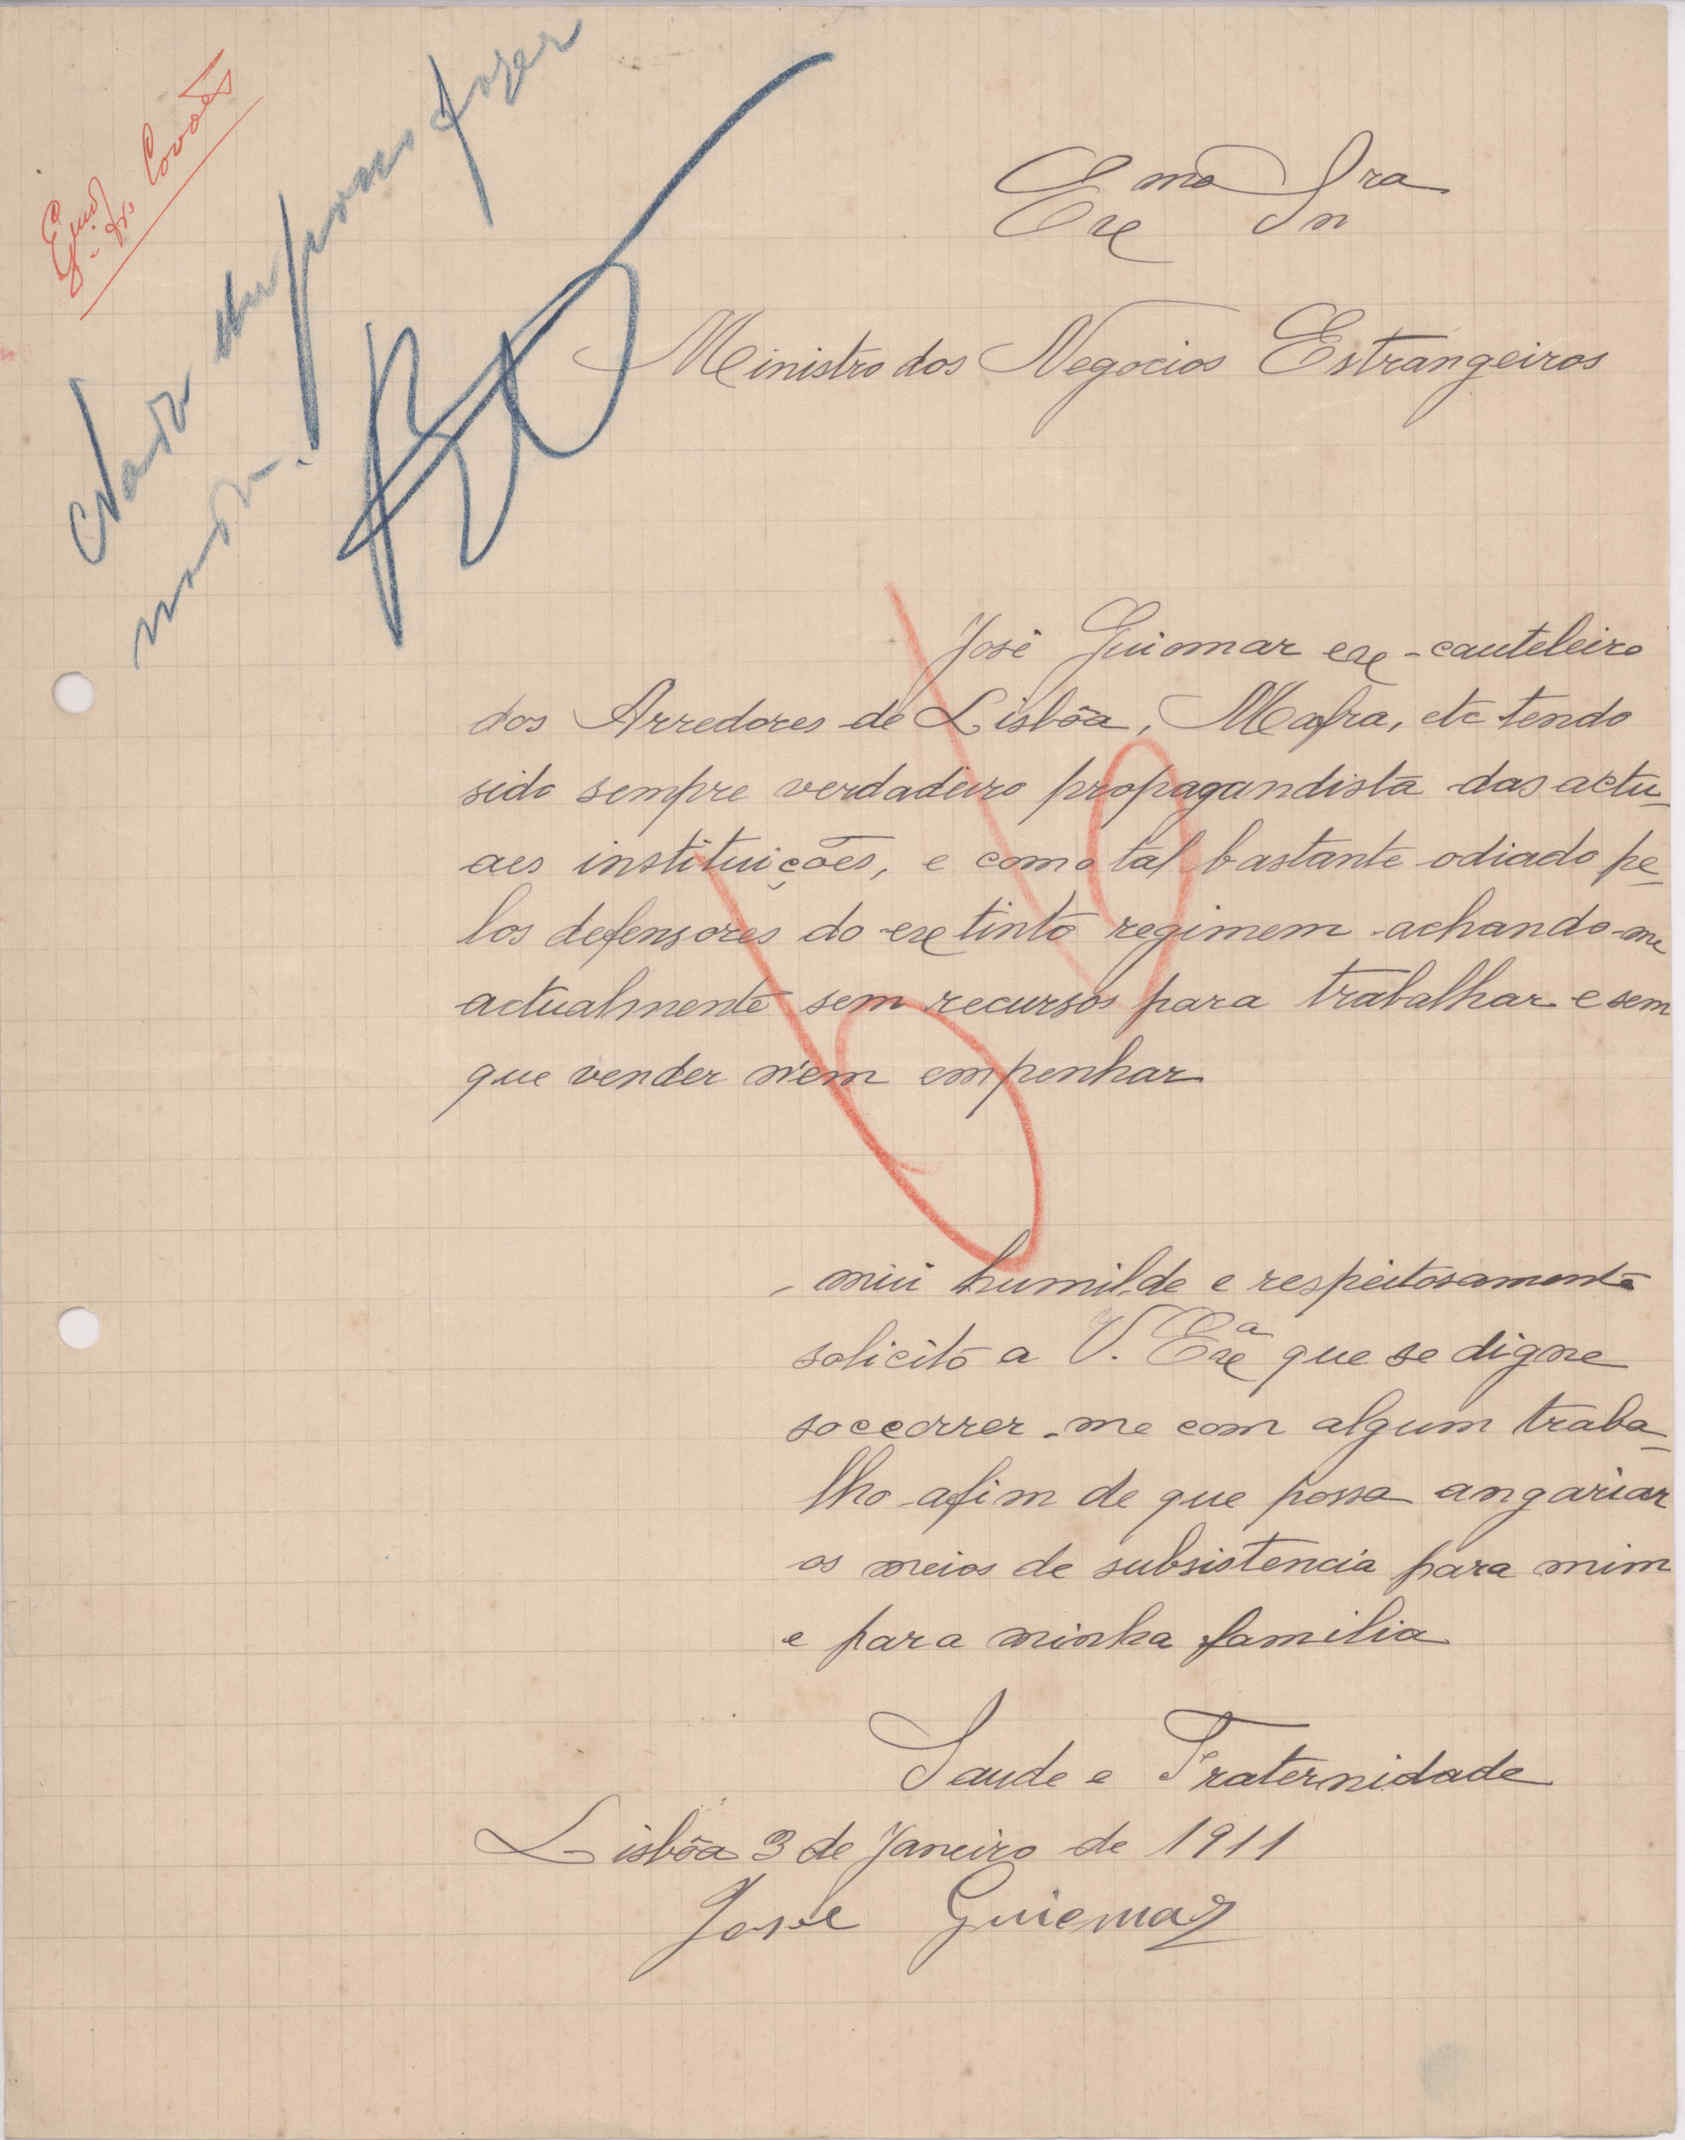 Covões
Nada lhe posso fazer
Exmo Snra
Ministro dos Negocios Estrangeiros
José Guiomar ex-cauteleiro
dos Arredores de Lisbôa, Mafra, etc tendo
sido sempre verdadeiro propagandista das actu-
aes instituições, e como tal bastante odiado pe-
los defensores do extinto regimem achando-me
actualmente sem recursos para trabalhar e sem
que vender nem empenhar
mui humilde e respeitosamente
solicito a V. Exª que se digne
soccorrer-me com algum traba-
lho afim de que possa angariar
os meios de subsistencia para mim
e para minha familia
Saude e Fraternidade
Lisbôa 3 de Janeiro de 1911
José Guiemar